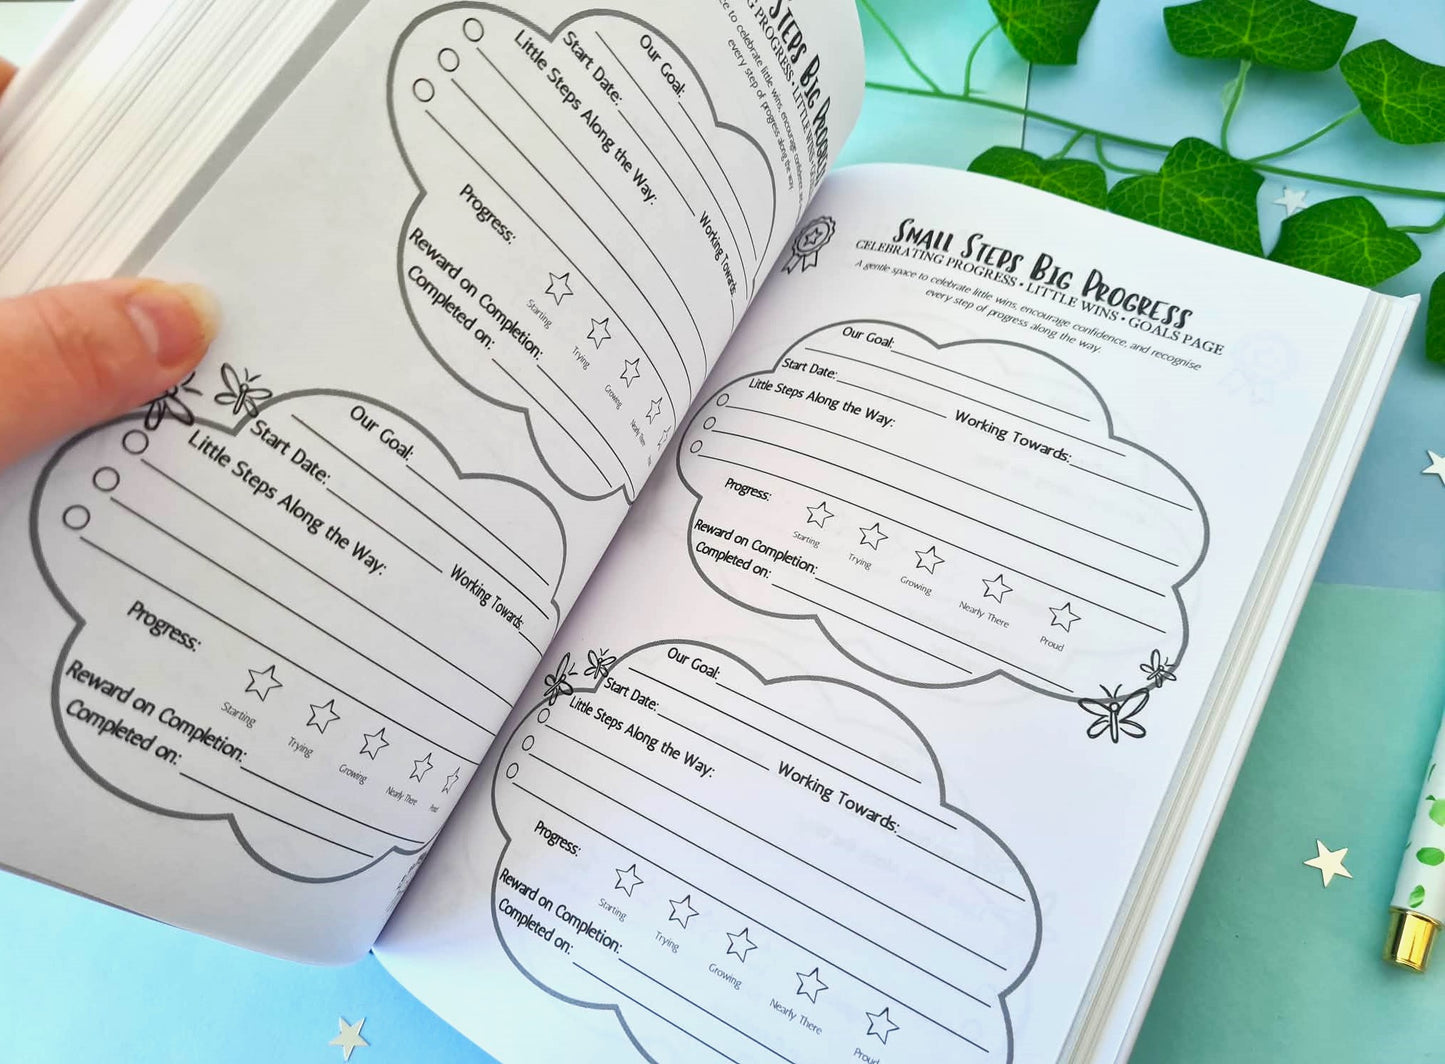 STEPS BIG PROGRESS
PROGRESS • LITTLE WINS
to celebrate little wins, encourage confidence,
every step of progress along the way
Our Goal:
Start Date:
Working Towards:
Little Steps Along the Way:
Progress:
Starting
Trying
Growing
Nearly There
Reward on Completion:
Completed on:
Our Goal:
Start Date:
Working Towards:
Little Steps Along the Way:
Progress:
Starting
Trying
Growing
Nearly There
Proud
Reward on Completion:
Completed on:
SMALL STEPS BIG PROGRESS
CELEBRATING PROGRESS • LITTLE WINS • GOALS PAGE
A gentle space to celebrate little wins, encourage confidence, and recognise
every step of progress along the way.
Our Goal:
Start Date:
Working Towards:
Little Steps Along the Way:
Progress:
Starting
Trying
Growing
Nearly There
Proud
Reward on Completion:
Completed on:
Our Goal:
Start Date:
Working Towards:
Little Steps Along the Way:
Progress:
Starting
Trying
Growing
Nearly There
Proud
Reward on Completion:
Completed on: